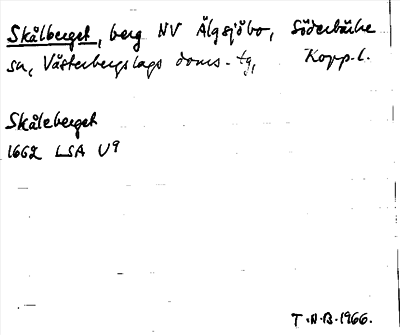 Skålberget, berg NV Älgsjöbo, Söderbärke
sn, Västerbergslags doms.-tg, Kopp. l.
Skåleberget
1662 LSA U9
T.A.B. 1966.